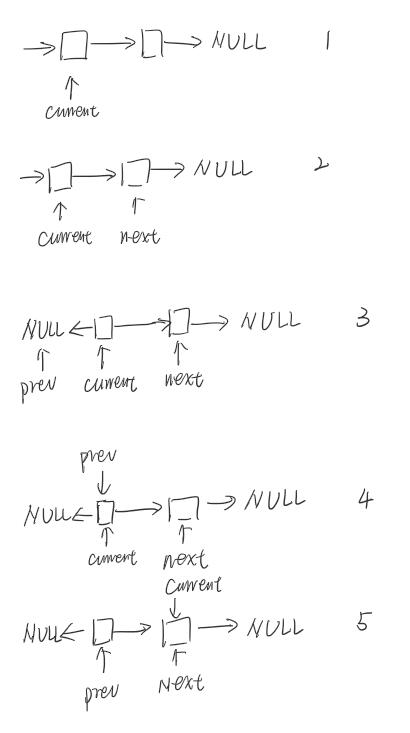 NULL 1
current
NULL 2
current next
NULL NULL 3
prev current next
prev
NULL NULL 4
current next
current
NULL NULL 5
prev Next